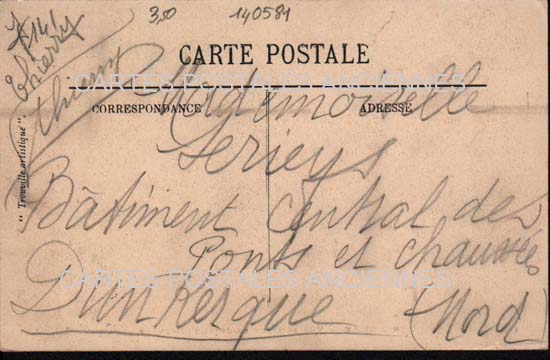 3,50 140581
Thierry
thierry
CARTE POSTALE
CARTES POSTALES ANCIENNES
CORRESPONDANCE ADRESSE
Mademoiselle
Serieys
Bâtiment central des
Ponts et chaussées
CARTES POSTALES ANCIENNES
Dunkerque (Nord)
" Trouville artistique ".